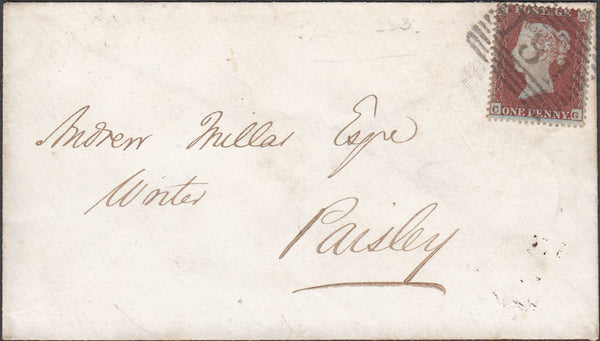 POSTAGE
C ONE PENNY G
Andrew Millar Esqre
Writer
Paisley